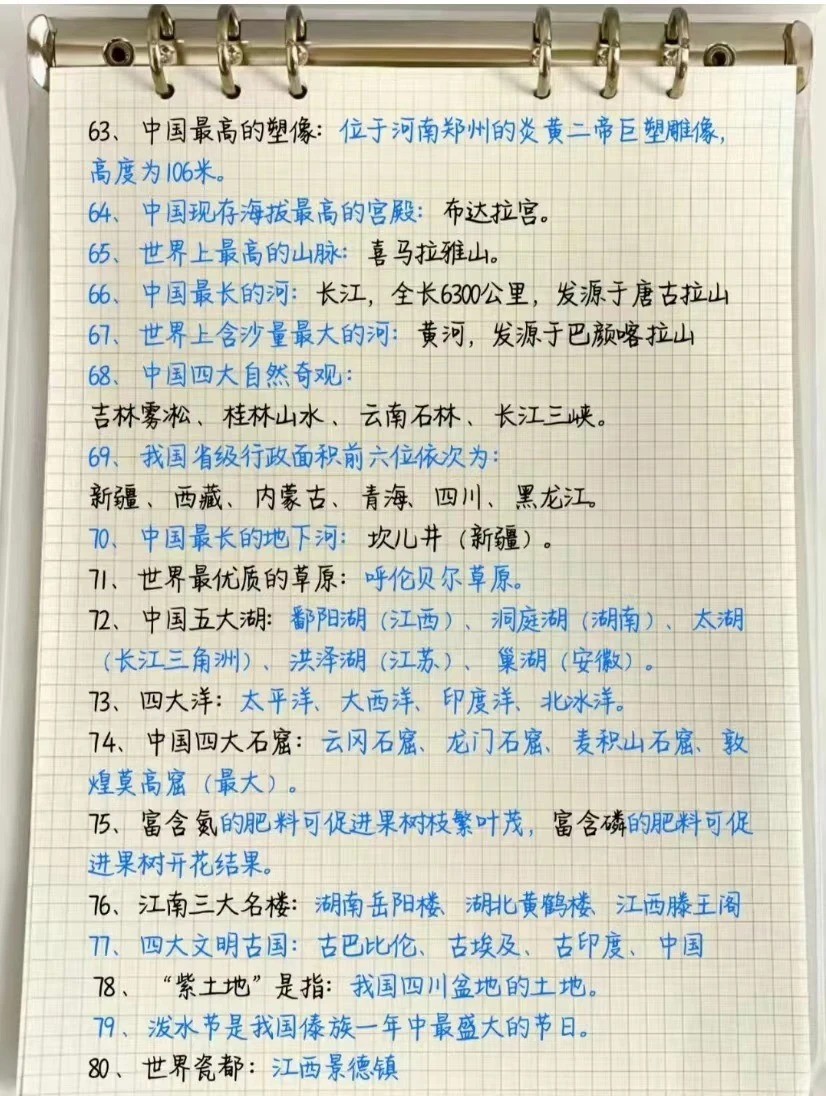 63、中国最高的塑像：位于河南郑州的炎黄二帝巨塑雕像，
高度为106米。
64、中国现存海拔最高的宫殿：布达拉宫。
65、世界上最高的山脉：喜马拉雅山。
66、中国最长的河：长江，全长6300公里，发源于唐古拉山
67、世界上含沙量最大的河：黄河，发源于巴颜喀拉山
68、中国四大自然奇观：
吉林雾凇、桂林山水、云南石林、长江三峡。
69、我国省级行政面积前六位依次为：
新疆、西藏、内蒙古、青海、四川、黑龙江。
70、中国最长的地下河：坎儿井（新疆）。
71、世界最优质的草原：呼伦贝尔草原。
72、中国五大湖：鄱阳湖（江西）、洞庭湖（湖南）、太湖
（长江三角洲）、洪泽湖（江苏）、巢湖（安徽）。
73、四大洋：太平洋、大西洋、印度洋、北冰洋。
74、中国四大石窟：云冈石窟、龙门石窟、麦积山石窟、敦
煌莫高窟（最大）。
75、富含氮的肥料可促进果树枝繁叶茂，富含磷的肥料可促
进果树开花结果。
76、江南三大名楼：湖南岳阳楼、湖北黄鹤楼、江西滕王阁
77、四大文明古国：古巴比伦、古埃及、古印度、中国
78、“紫土地”是指：我国四川盆地的土地。
79、泼水节是我国傣族一年中最盛大的节日。
80、世界瓷都：江西景德镇